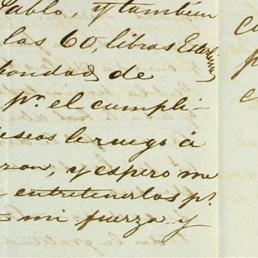 Pablo, y tambien
las 60, libras Ester
bondad de
pr. el cumpli-
deseos le ruego á
y espero me
entretenerlos pr.
mi fuerza y